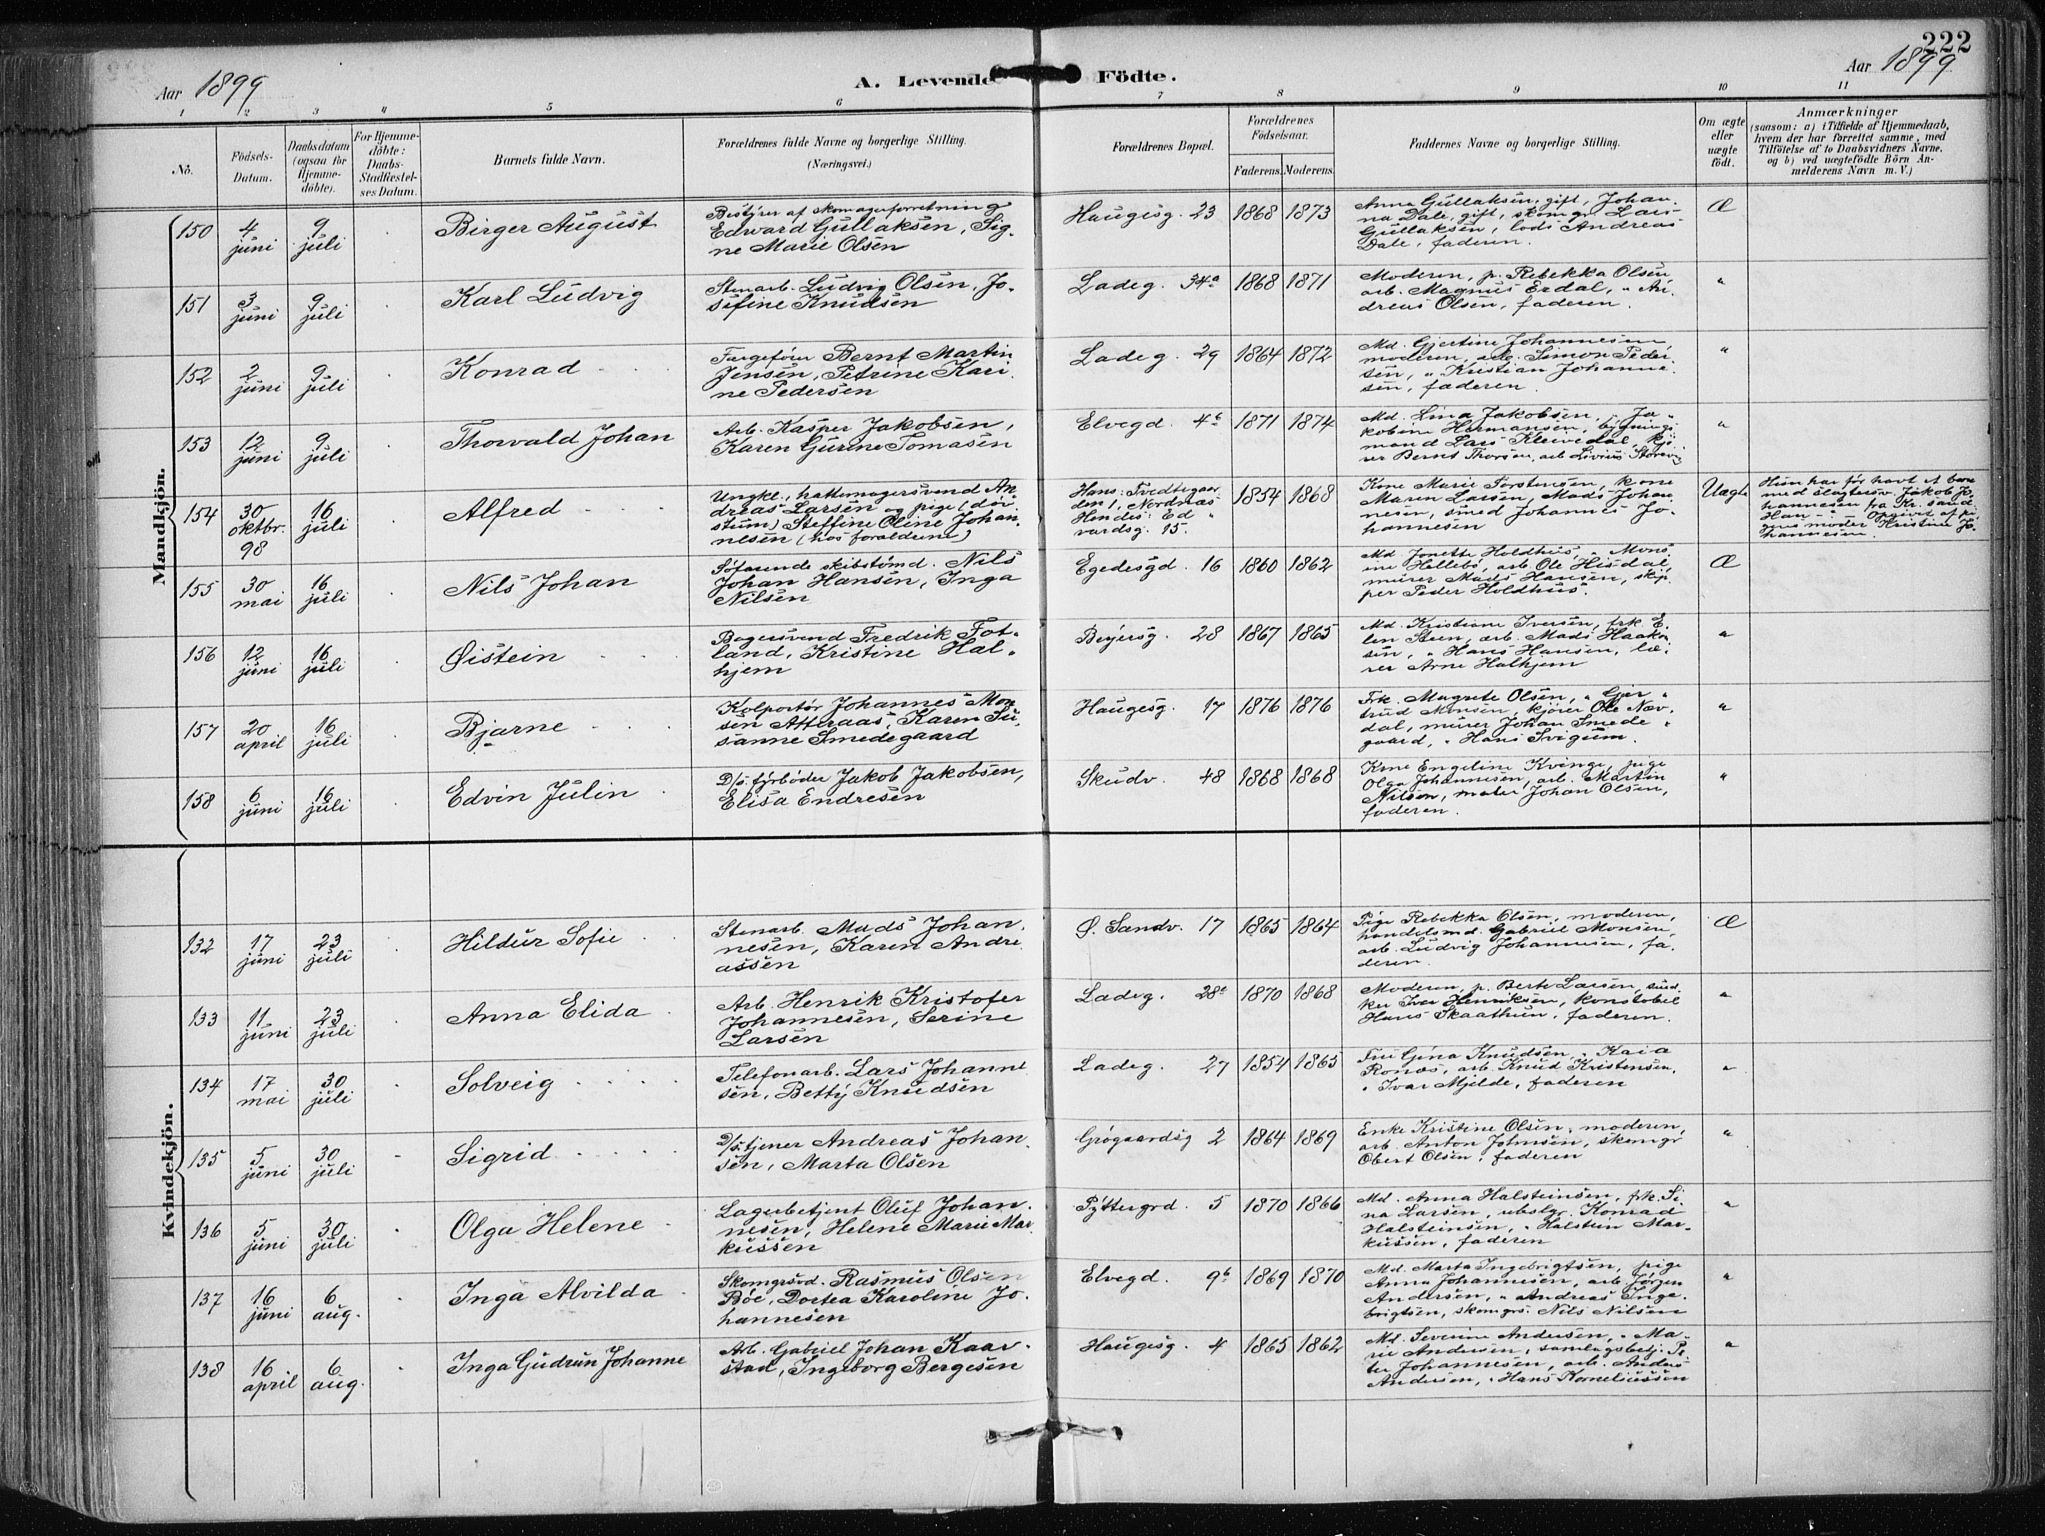 222
Aar 1899
A. Levende Födte.
Aar 1899
1 2 3 4 5 6 7 8 9 10 11
No.
Födsels-
Datum.
Daabsdatum
(ogsaa for
Hjemme-
döbte).
For Hjemme-
döbte:
Daabs-
Stadfestel-
ses Datum.
Barnets fulde Navn.
Forældrenes fulde Navne og borgerlige Stilling.
(Næringsvei.)
Forældrenes Bopæl.
Forældrenes
Födselsaar.
Faderens. Moderens.
Faddernes Navne og borgerlige Stilling.
Om ægte
eller
uægte
födt.
Anmærkninger
(saasom: a) i Tilfælde af Hjemmedaab,
hvem der har forrettet samme, med
Tilföielse af to Daabsvidners Navne,
og b) ved uægtefödte Börn An-
melderens Navn m. V.)
Mandkjön.
150
4
juni
9
juli
Birger August
Bestyrer af skomagerforretning
Edward Gullaksen, Sig-
ne Marie Olsen
Haugesg. 23
1868
1873
Anna Gullaksen, gift, Johan-
na Dale, gift, skomgr. Lars
Gullaksen, lods Andreas
Dale, faderen.
Æ
151
3
juni
9
juli
Karl Ludvig
Stenarb. Ludvig Olsen, Jo-
sefine Knudsen
Ladeg. 34a
1868
1871
Moderen, p. Rebekka Olsen
arb. Magnus Erdal, " An-
dreas Olsen, faderen.
"
152
2
juni
9
juli
Konrad
Færgefører Bernt Martin
Jensen, Petrine Kari-
ne Pedersen
Ladeg. 29
1864
1872
Md. Gjertine Johannesen
moderen, arb. Simon Peder-
sen, " Kristian Johanne-
sen, faderen.
"
153
12
juni
9
juli
Thorvald Johan
Arb. Kasper Jakobsen,
Karen Gurine Tomasen
Elvegd. 4b
1871
1874
Md. Lina Jakobsen, " Ja-
kobine Hermansen, bygnings-
mand Lars Kleivedal, kjø-
rer Bernt Thorsen, arb Livius Storevi
"
154
30
oktbr.
98
16
juli
Alfred
Ungkl., hattemagersvend An-
dreas Larsen og pige (døv-
stum) Steffine Oline Johan-
nesen (hos forældrene)
Hans: Tvedtegaar-
den 1, Nordnæs
Hendes: Ed-
vardsg. 15.
1854
1868
Kone Marie Torstensen, kone
Maren Larsen, Mads Johan-
nesen, smed Johannes Jo-
hannesen
Uægte
Hun har før havt et barn
med slagtersv. Jakob Jo-
hannesen fra Kr.sand
Han -:- Opgivet af pi-
gens moder Kristine Jo-
hannesen.
155
30
mai
16
juli
Nils Johan
Søfarende skibstømd. Nils
Johan Hansen, Inga
Nilsen
Egedesgd. 16
1860
1862
Md. Jonette Holdhus, " Mons-
ine Hellebø, arb. Ole Hisdal,
murer Mads Hansen, skip-
per Peder Holdhus.
Æ
156
12
juni
16
juli
Øistein
Bagersvend Fredrik Fot-
land, Kristine Hal-
hjem
Beyersg. 28
1867
1865
Md. Kristiane Iversen, frk. E-
len Steen, arb. Mads Haak-
sen, " Hans Hansen, læ-
rer Arne Halhjem
"
157
20
april
16
juli
Bjarne
Kolportør Johannes Mon-
sen Atteraas, Karen Su-
sanne Smedegaard
Haugesg. 17
1876
1876
Frk. Magrete Olsen, " Gjer-
trud Monsen, kjører Ole Nav-
dal, murer Johan Smede-
gaard, " Hans Svigum.
"
158
6
juni
16
juli
Edvin Julin
D/s. fyrbøder Jakob Jakobsen,
Elisa Endresen
Skudv. 48
1868
1868
Kone Engeline Kvinge, pige
Olga Johannesen, arb. Martin
Nilsen, maler Johan Olsen,
faderen.
"
Kvindekjön.
132
17
juni
23
juli
Hildur Sofie
Stenarb. Mads Johan-
nesen, Karen Andre-
assen
Ø. Sandv. 17
1865
1864
Pige Rebekka Olsen, moderen,
handelsmd. Gabriel Monsen,
arb. Ludvig Johannesen, fa-
deren.
Æ
133
11
juni
23
juli
Anna Elida
Arb. Henrik Kristofer
Johannesen, Serine
Larsen
Ladeg. 28a
1870
1868
Moderen, p. Berte Larsen, snd.
ker Iver Henriksen, konstabel
Hans Skaathun, faderen.
"
134
17
mai
30
juli
Solveig
Telefonarb. Lars Johanne-
sen, Betty Knudsen
Ladeg. 27
1854
1865
Fru Gina Knudsen, " Kaia
Ronæs, arb. Knud Kristensen,
" Ivar Mjelde, faderen
"
135
5
juni
30
juli
Sigrid
D/s. tjener Andreas Johan-
sen, Marta Olsen
Grøgaardsg 2
1864
1869
Enke Kristine Olsen, moderen,
arb. Anton Johnsen, skomgr
Obert Olsen, faderen
"
136
5
juni
30
juli
Olga Helene
Lagerbetjent Oluf Johan-
nesen, Helene Marie Mar-
kussen
Pyttergrd. 5
1870
1866
Md. Anna Halsteinsen, frk. Si-
na Larsen, ubslgr. Konrad
Halsteinsen, " Halstein Mar-
kussen, faderen
"
137
16
juni
6
aug.
Inga Alvilda
Skomgrsvd. Rasmus Olsen
Bøe, Dortea Karoline Jo-
hannesen
Elvegd. 9b
1869
1870
Md. Marta Ingebrigtsen, pige
Anna Johannesen, arb. Jørgen
Andersen, " Andreas Inge-
brigtsen, skomgrs. Nils Nilsen
"
138
16
april
6
aug.
Inga Gudrun Johanne
Arb. Gabriel Johan Kaar-
stad, Ingeborg Bergesen
Haugesg. 4
1865
1862
Md. Severine Andersen, " Ma-
rie Andersen, samlagsbetj. Pe-
ter Johannesen, arb. Anders
Andersen, " Hans Korneliussen
"